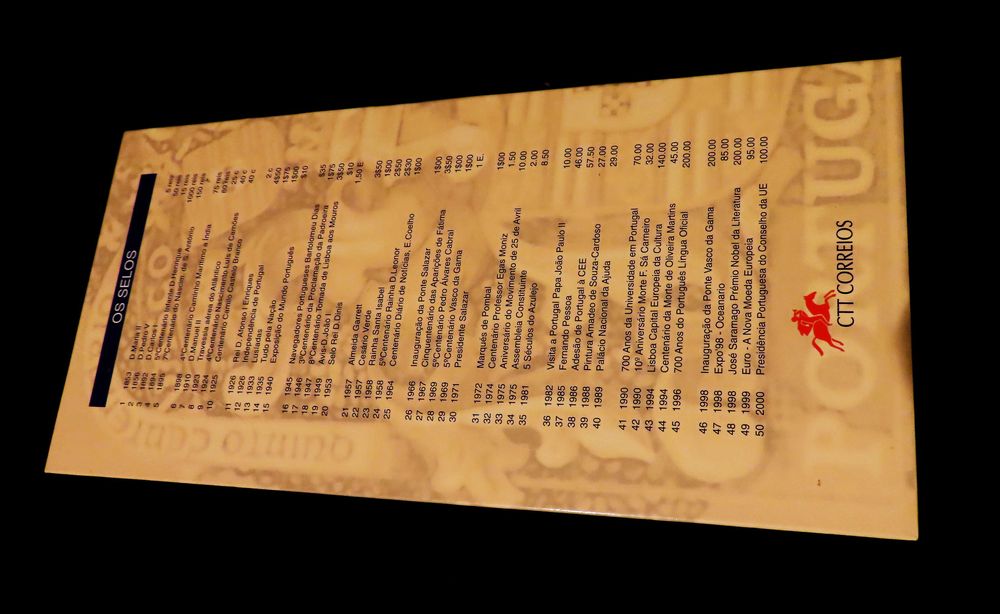 OS SELOS
1 1853 D.Maria II 5 reis
2 1856 D.Pedro V 50 reis
3 1892 D.Carlos I 15 reis
4 1894 5ºCentenário Infante D.Henrique 1000 reis
5 1895 7ºCentenário do Nascim. de S. António 150 reis
6 1898 4ºCentenário Caminho Marítimo a India 75 reis
7 1910 D.Manuel II
9 1924 4ºCentenário Nascimento Luís de Camões
8 1923 Travessia aérea do Atlântico
10 1925 Centenário Camilo Castelo Branco
11 1926 Rei D. Afonso I Enriques
12 1926 Independência de Portugal
13 1933 Lusíadas
14 1935 Tudo pela Nação
15 1940 Exposição do Mundo Português
16 1945 Navegadores Portugueses Bartolomeu Dias
17 1946 3ºCentenário da Proclamação da Padroeira
18 1947 8ºCentenário Tomada de Lisboa aos Mouros
19 1949 Aviso João I
20 1953 Selo Rei D.Dinis
21 1957 Almeida Garrett 3$50
22 1957 Cesário Verde 1$00
23 1958 Rainha Santa Isabel 2$50
24 1958 5ºCentenário Rainha D.Leonor 2$30
25 1964 Centenário Diário de Notícias, E.Coelho 1$00
26 1966 Inauguração da Ponte Salazar 1$00
27 1967 Cinquentenário das Aparições de Fátima 1$00
28 1969 5ºCentenário Vasco da Gama
29 1969 5ºCentenário Pedro Álvares Cabral 3$50
30 1971 Presidente Salazar 1 E.
31 1972 Marquês de Pombal 1$00
32 1974 Centenário Professor Egas Moniz 1.50
33 1975 Aniversário do Movimento de 25 de Avril 10.00
34 1975 Assembleia Constituinte 2.00
35 1981 5 Séculos do Azulejo 8.50
36 1982 Visita a Portugal Papa João Paulo II 10.00
37 1985 Fernando Pessoa 46.00
38 1986 Adesão de Portugal à CEE 57.50
39 1988 Pintura Amadeo de Souza-Cardoso 27.00
40 1989 Palácio Nacional da Ajuda 29.00
41 1990 700 Anos da Universidade em Portugal 70.00
42 1990 10º Aniversário Morte F. Sá Carneiro 32.00
43 1994 Lisboa Capital Europeia da Cultura 140.00
44 1994 Centenário da Morte de Oliveira Martins 45.00
45 1996 700 Anos do Português Língua Oficial 200.00
46 1998 Inauguração da Ponte Vasco da Gama 200.00
47 1998 Expo'98 - Oceanario 85.00
48 1998 José Saramago Prémio Nobel da Literatura 200.00
49 1999 Euro - A Nova Moeda Europeia 95.00
50 2000 Presidência Portuguesa do Conselho da UE 100.00
CTT CORREIOS